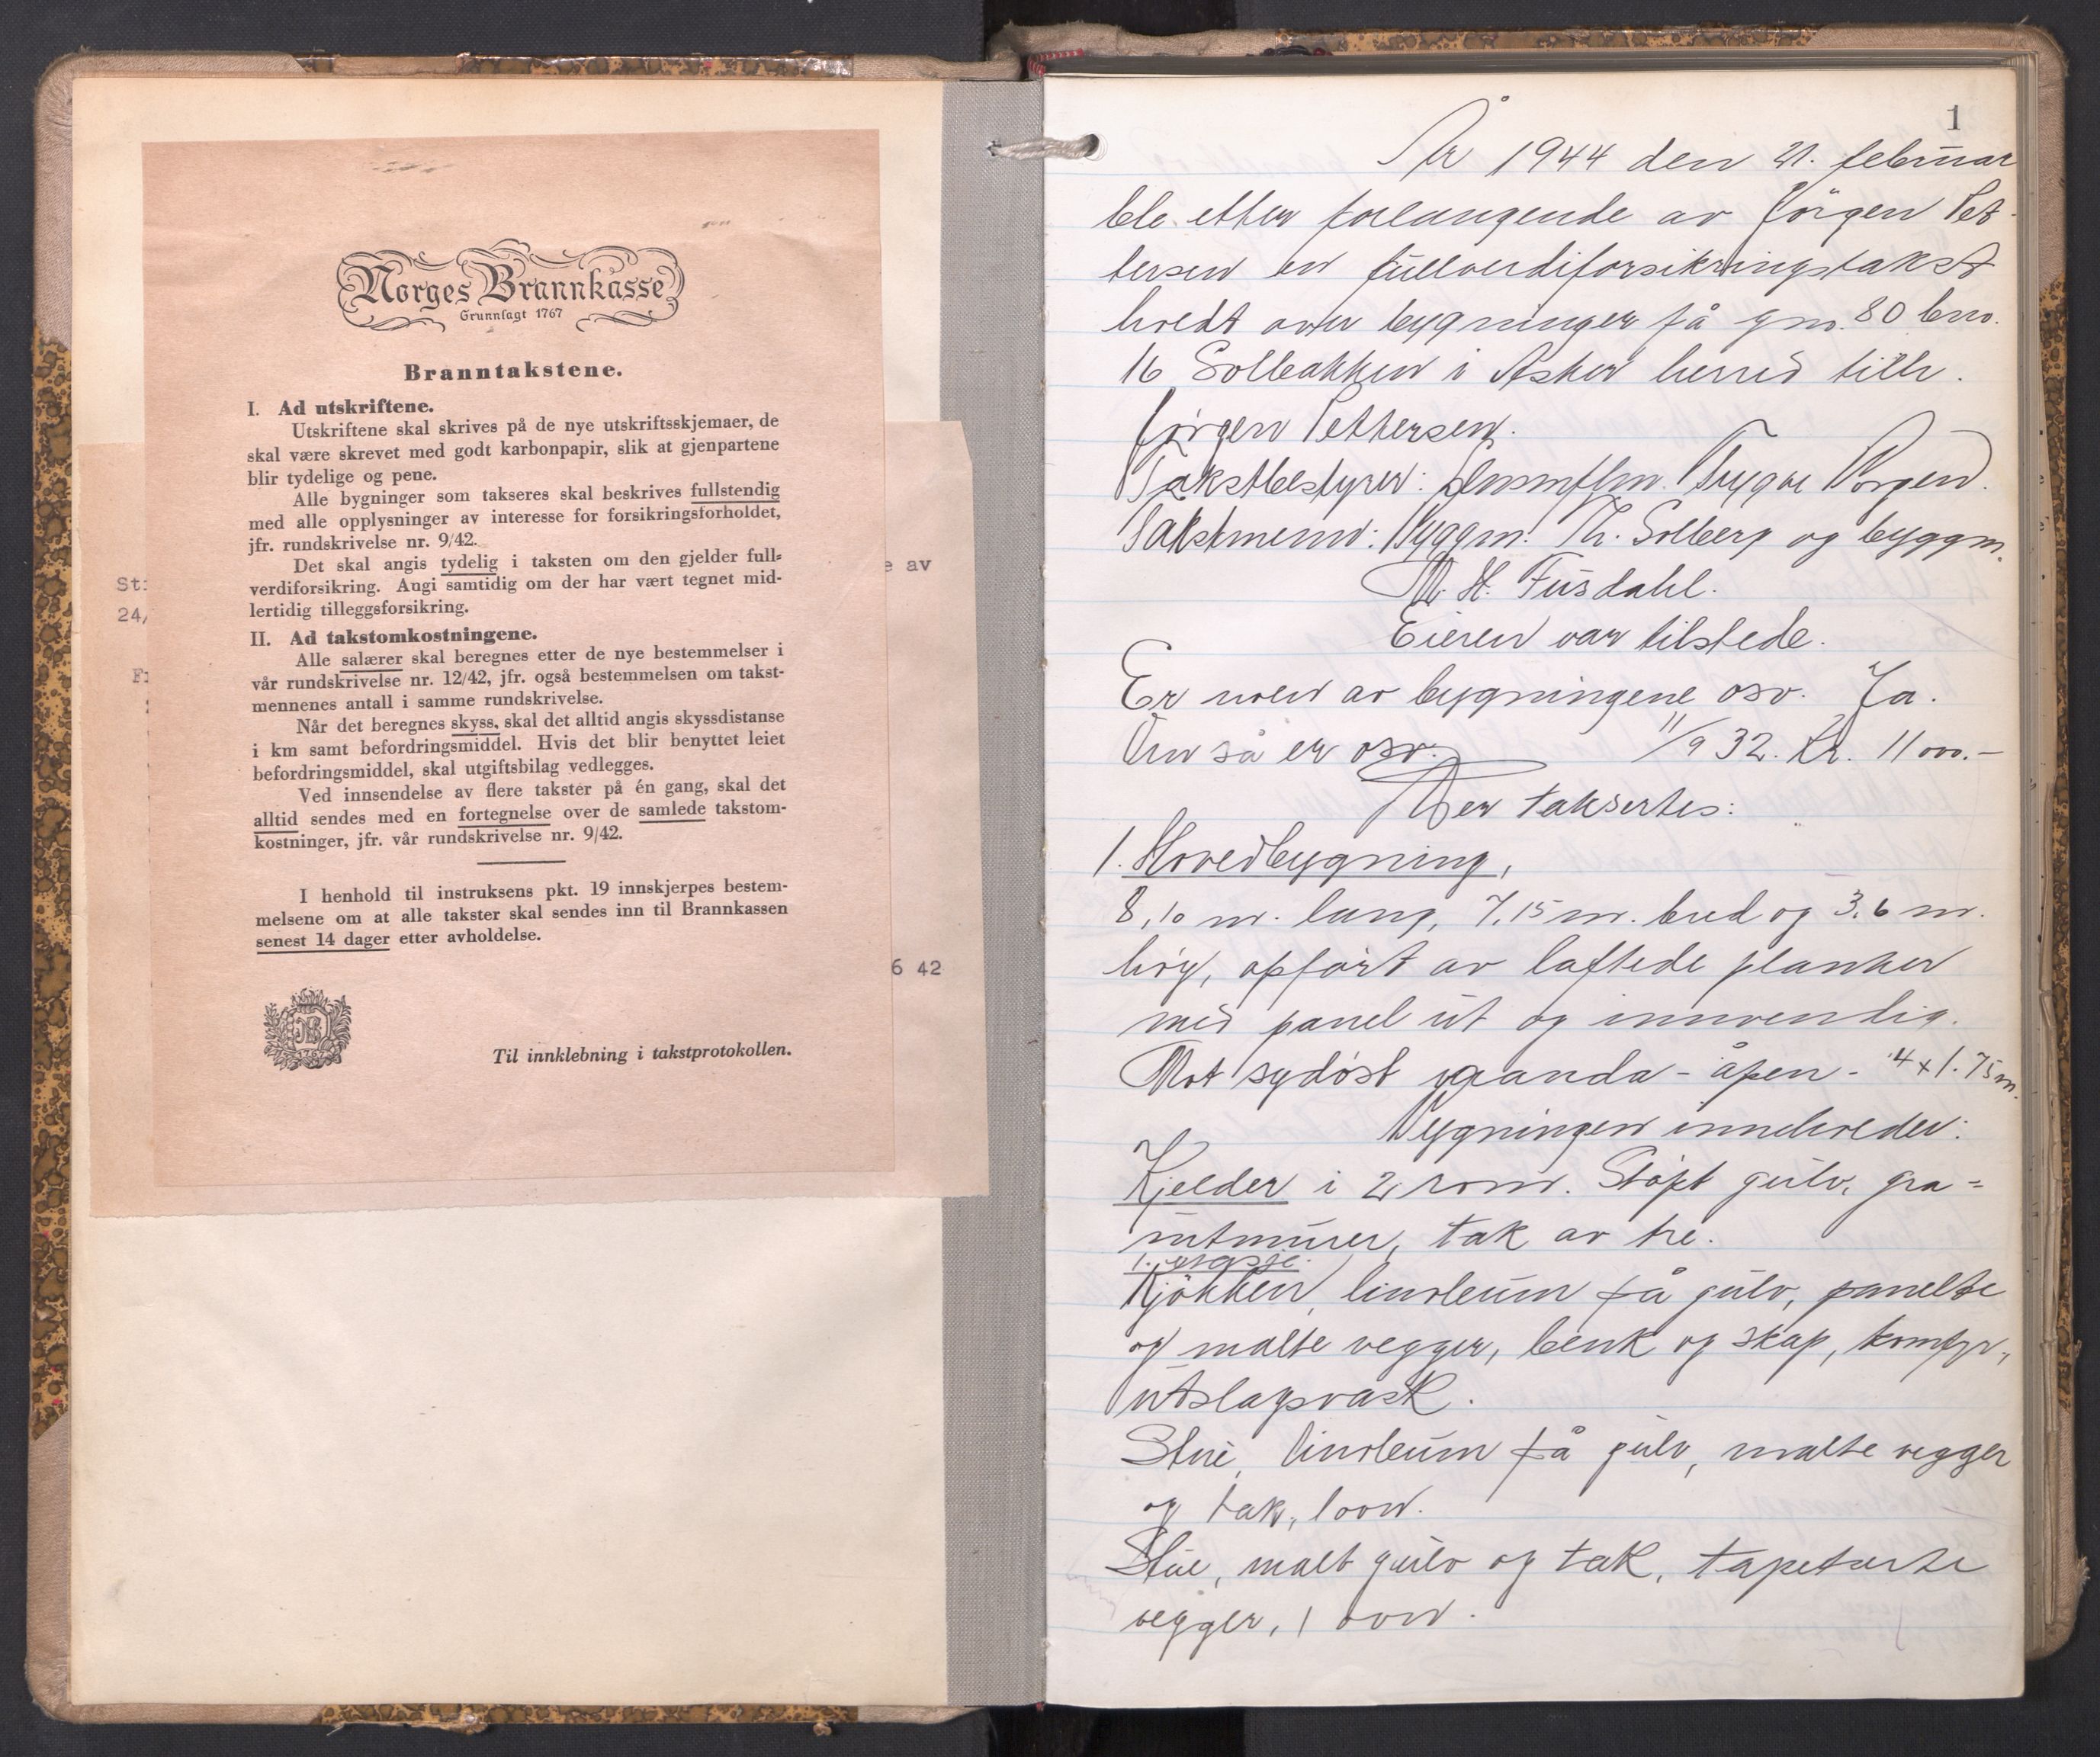 Norges Brannkasse
Grunnlagt 1767
Branntakstene.
I. Ad utskriftene.
Utskriftene skal skrives på de nye utskriftsskjemaer, de
skal være skrevet med godt karbonpapir, slik at gjenpartene
blir tydelige og pene.
Alle bygninger som takseres skal beskrives fullstendig
med alle opplysninger av interesse for forsikringsforholdet,
jfr. rundskrivelse nr. 9/42.
Det skal angis tydelig i taksten om den gjelder full-
verdiforsikring. Angi samtidig om der har vært tegnet mid-
lertidig tilleggsforsikring.
II. Ad takstomkostningene.
Alle salærer skal beregnes etter de nye bestemmelser i
vår rundskrivelse nr. 12/42, jfr. også bestemmelsen om takst-
mennenes antall i samme rundskrivelse.
Når det beregnes skyss, skal det alltid angis skyssdistanse
i km samt befordringsmiddel. Hvis det blir benyttet leiet
befordringsmiddel, skal utgiftsbilag vedlegges.
Ved innsendelse av flere takster på én gang, skal det
alltid sendes med en fortegnelse over de samlede takstom-
kostninger, jfr. vår rundskrivelse nr. 9/42.
I henhold til instruksens pkt. 19 innskjerpes bestem-
melsene om at alle takster skal sendes inn til Brannkassen
senest 14 dager etter avholdelse.
Til innklebning i takstprotokollen.
24/
av
6 42
1
År 1944 den 21. februar
ble etter forlangende av Jörgen Pet-
tersen en fullverdiforsikringstakst
holdt over bygninger på gno. 80 bno.
16 Solbakken i Asker herred tilh.
Jørgen Pettersen.
Takstbestyrer: Trygve
Takstmenn: Byggm. Th. Solberg og byggm.
M. H. Fusdahl.
Eieren var tilstede.
Er noen av bygningene osv. Ja.
Om så er osv. 11/9 32. Kr. 11000.-
Der taksertes:
1. Hovedbygning,
8,10 m. lang, 7,15 m. bred og 3.6 m.
høy, opført av laftede planker
med panel ut og innvendig.
Mot sydøst veranda - åpen - 4 x 1.75 m.
Bygningen inneholder:
Kjelder i 2 rom. Støpt gulv, gra=
nitmurer, tak av tre.
1. etasje.
Kjökken, linoleum på gulv, panelte
og malte vegger, benk og skap, komfyr,
utslagsvask.
Stue, linoleum på gulv, malte vegger
og tak, 1 ovn.
Stue, malt gulv og tak, tapetserte
vegger, 1 ovn.